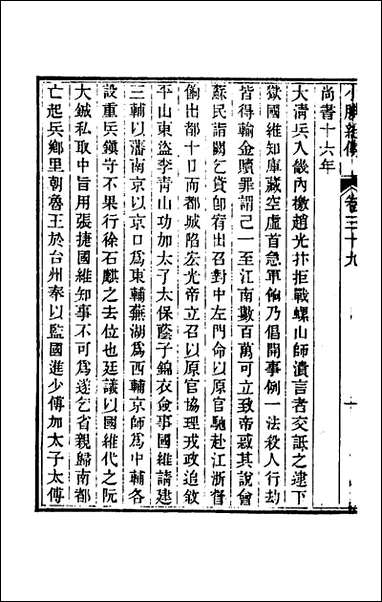 小腆紀傳 卷三十九
尚書十六年
大清兵入畿內檄趙光抃拒戰螺山師潰言者交詆之逮下
獄國維知庫藏空虛首急軍餉乃倡開事例一法殺人行劫
皆得輸金贖罪謂己一至江南數百萬可立致帝惑其說會
蘇民詣闕乞貸卽宥出召對中左門命以原官馳赴江浙督
餉出都十日而都城陷宏光帝立召以原官協理戎政追敘
平山東盜李青山功加太子太保蔭子錦衣僉事國維請建
三輔以藩南京以京口爲東輔蕪湖爲西輔京師爲中輔各
設重兵鎮守不果行徐石麒之去位也廷議以國維代之阮
大鋮私取中旨用張捷國維知事不可爲遂乞省親歸南都
亡起兵鄉里朝魯王於台州奉以監國進少傅加太子太傅